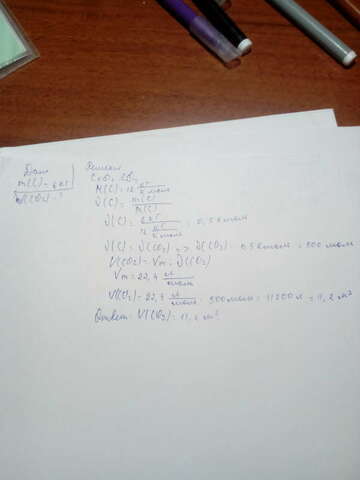 Дано
m(C) = 6 кг
V(CO₂) - ?
Решение
M(C) = 12 кг/кмоль
ν(C) = m(C)/M(C)
ν(C) = 6 кг / 12 кг/кмоль = 0,5 кмоль
ν(C) = ν(CO₂) => ν(CO₂) = 0,5 кмоль = 500 моль
V(CO₂) = Vm · ν(CO₂)
Vm = 22,4 л/моль
V(CO₂) = 22,4 л/моль · 500 моль = 11200 л = 11,2 м³
Ответ: V(CO₂) = 11,2 м³